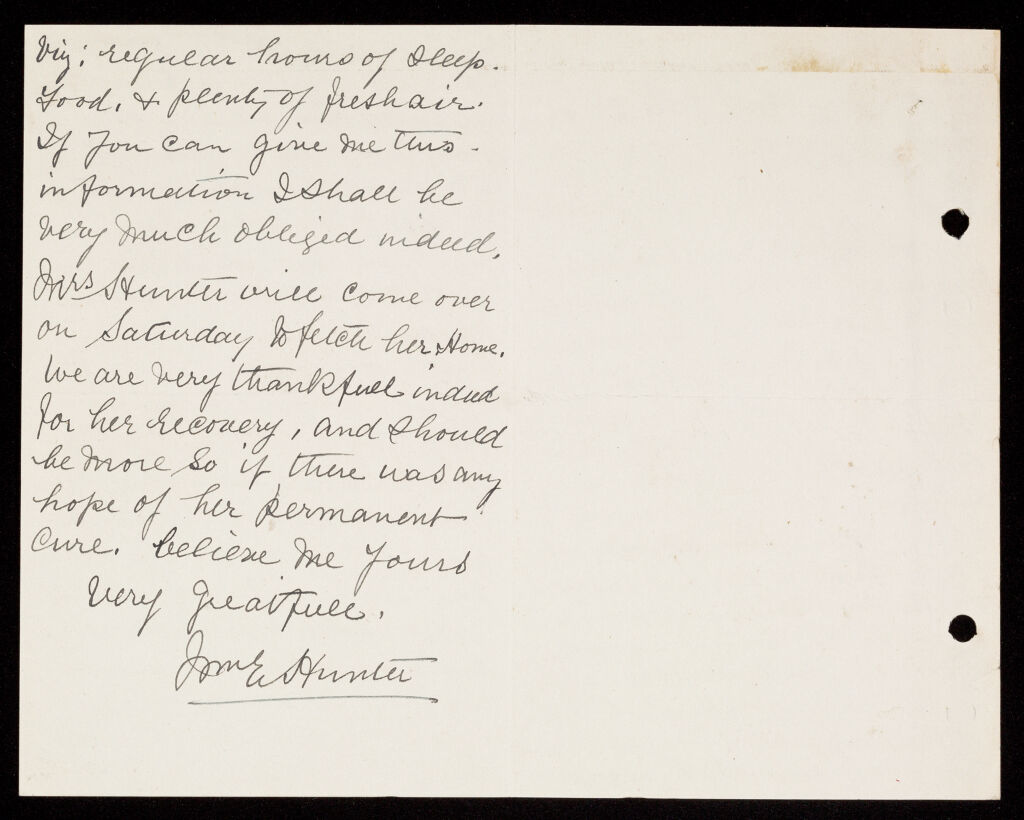 Viz: regular hours of sleep.
Food, & plenty of fresh air.
If you can give me this
information I shall be
very much obliged indeed.
Mrs Hunter will come over
on Saturday to fetch her Home.
We are very thankfull indeed
for her recovery, and should
be more so if there was any
hope of her permanent
cure. believe me yours
very greatfull.
Wm E Hunter